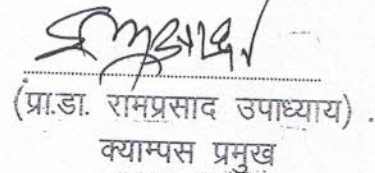 (प्रा.डा. रामप्रसाद उपाध्याय) .
क्याम्पस प्रमुख